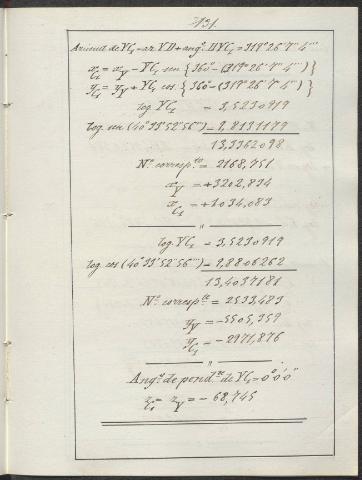 131.
Azimut de VC₁ = az. VD + angº DVC₁ = 319º 26' 7" 4'''
x_C₁ = x_V − VC₁ sen {360º − (319º 26' 7" 4''')}
y_C₁ = y_V + VC₁ cos {360º − (319º 26' 7" 4''')}
log. VC₁ = 3,5230919
log. sen (40º 33' 52" 56''') = 9,8131179
13,3362098
Nº corresp.te = 2168,751
x_V = +3202,834
x_C₁ = +1034,083
"
log. VC₁ = 3,5230919
log. cos (40º 33' 52" 56''') = 9,8806262
13,4037181
Nº corresp.te = 2533,483
y_V = −5505,359
y_C₁ = −2971,876
"
Angº de pend.te de VC₁ = 0º 0' 0"
z_C₁ = z_V = −68,745